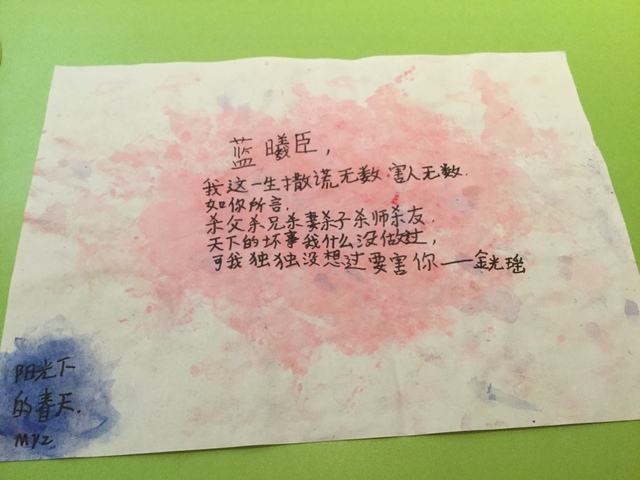 蓝曦臣，
我这一生撒谎无数.害人无数.
如你所言.
杀父杀兄杀妻杀子杀师杀友.
天下的坏事我什么没做过，
可我独独没想过要害你——金光瑶
阳光下
的春天.
MYZ